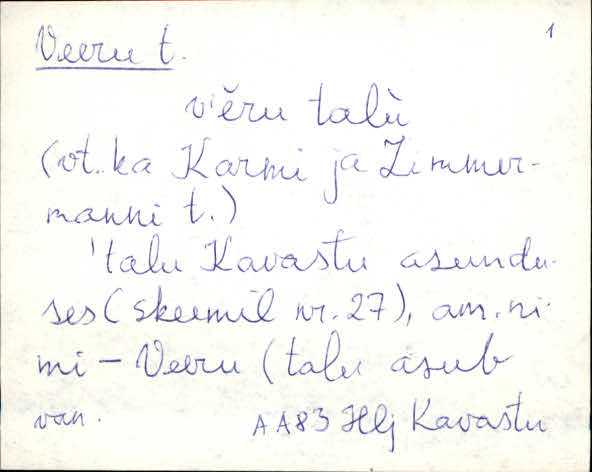 1
Veeru t.
v'ĕru talù
(vt. ka Karmi ja Zimmer-
manni t.)
'talu Kavastu asundu-
ses (skeemil nr. 27), am. ni-
mi - Veeru (talu asub
van.
AA83 Hlj Kavastu